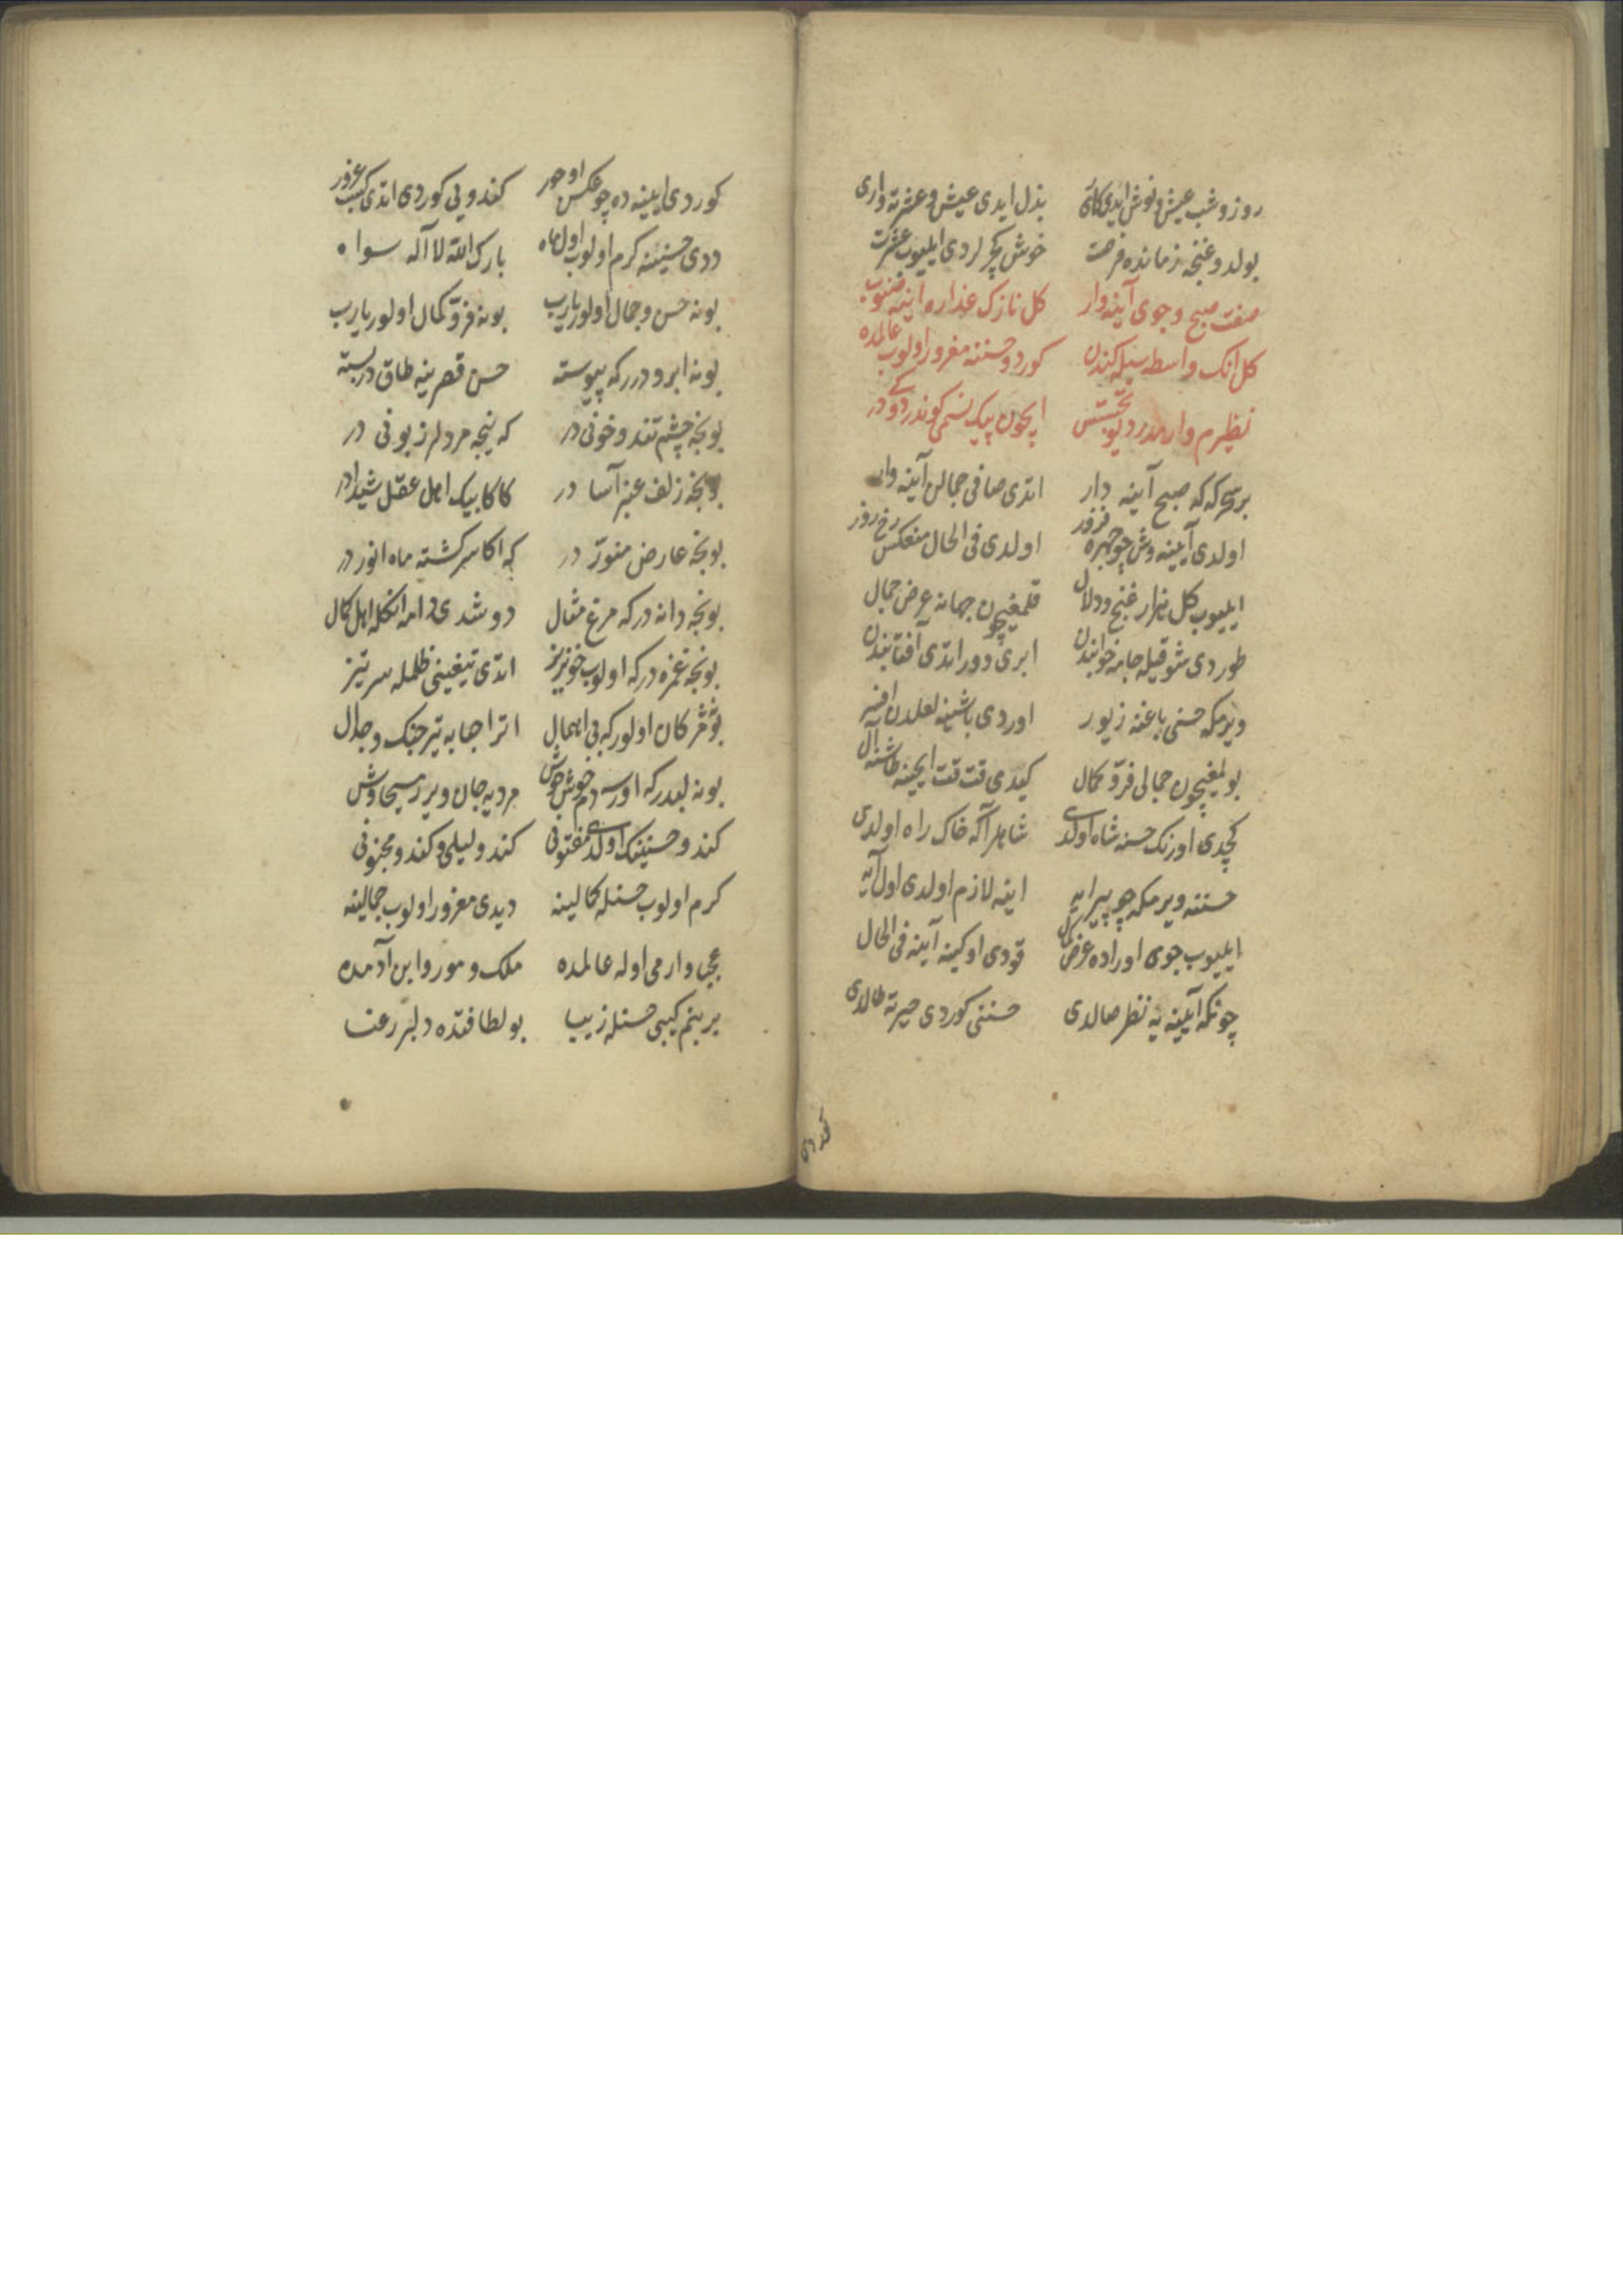 روز و شب عیش و نوش ایدی کاری بذل ایدی عیش و عشرته واری
بولدوغنجه زمانده فرصت خوش کچرلردی ایلیوب عشرت
صفت صبح و جوی آینه‌وار کل نازک عذاره اینه طوتوب
کل انک واسطه‌سیله کندن کوردو حسننه مغرور اولوب عالمده
نظیرم وارمدر دیو ایچون پیک نسیمی کوندردوکیدر
بر سحرکه که صبح آینه دار اتدی صافی جمالن آینه‌وار
اولدی آیینه‌وش چو چهره فروز اولدی فی الحال منعکس رخ روز
ایلیوب کل هزار غنج و دلال قلمغیچون جهانه عرض جمال
طوردی شوقیله جامه خوابندن ابری دور اتدی آفتابندن
ویرمکه حسنی باغنه زیور اوردی باشینه لعلدن افسر
بولمغیچون جمالی فر و کمال کیدی قت قت ایچینه طاشنه آل
کچدی اورنک حسنه شاه اولدی شاهلر آکه خاک راه اولدی
حسننه ویرمکه چو پیرایه اینه لازم اولدی اول آیه
ایلیوب جوی اوراده عرض کمال قودی اوکینه آینه فی الحال
چونکه آیینه‌یه نظر صالدی حسننی کوردی حیرته طالدی
کوردی ایینه‌ده چو عکس او حور کندویی کوردی اتدی کسب غرور
ددی حسنینه کرم اولوب اول ماه بارک الله لا آله سواه
بونه حسن و جمال اولور یارب بونه فر و کمال اولور یارب
بونه ابرودررکه پیوسته حسن قصرینه طاق دربسته
بونجه چشم تند و خونی در که نیجه مردلر زبونی در
بونجه زلف عنبر آسا در کاکا بیک اهل عقل شیدا در
بونجه عارض منور در که اکا سرکشته ماه انور در
بونجه دانه درکه مرغ مثال دوشدی دامه انکله اهل کمال
بونجه غمزه درکه اولوب خونریز اتدی تیغینی ظلمله سر تیز
بو مژکان اولورکه بی اهمال اترا حبابه تیر جنک و جدال
بونه لبدرکه اورسه دم خوش خوش مردیه جان ویرر مسیحاوش
کندو حسنینک اولدی مفتونی کندو لیلی و کندو مجنونی
کرم اولوب حسنله کمالینه دیدی مغرور اولوب جمالینه
عجبا وارمی اوله عالمده ملک و حور و ابن آدمده
بر بنم کیبی حسنله زیبا بو لطافتده دلبر رعنا
کوردی